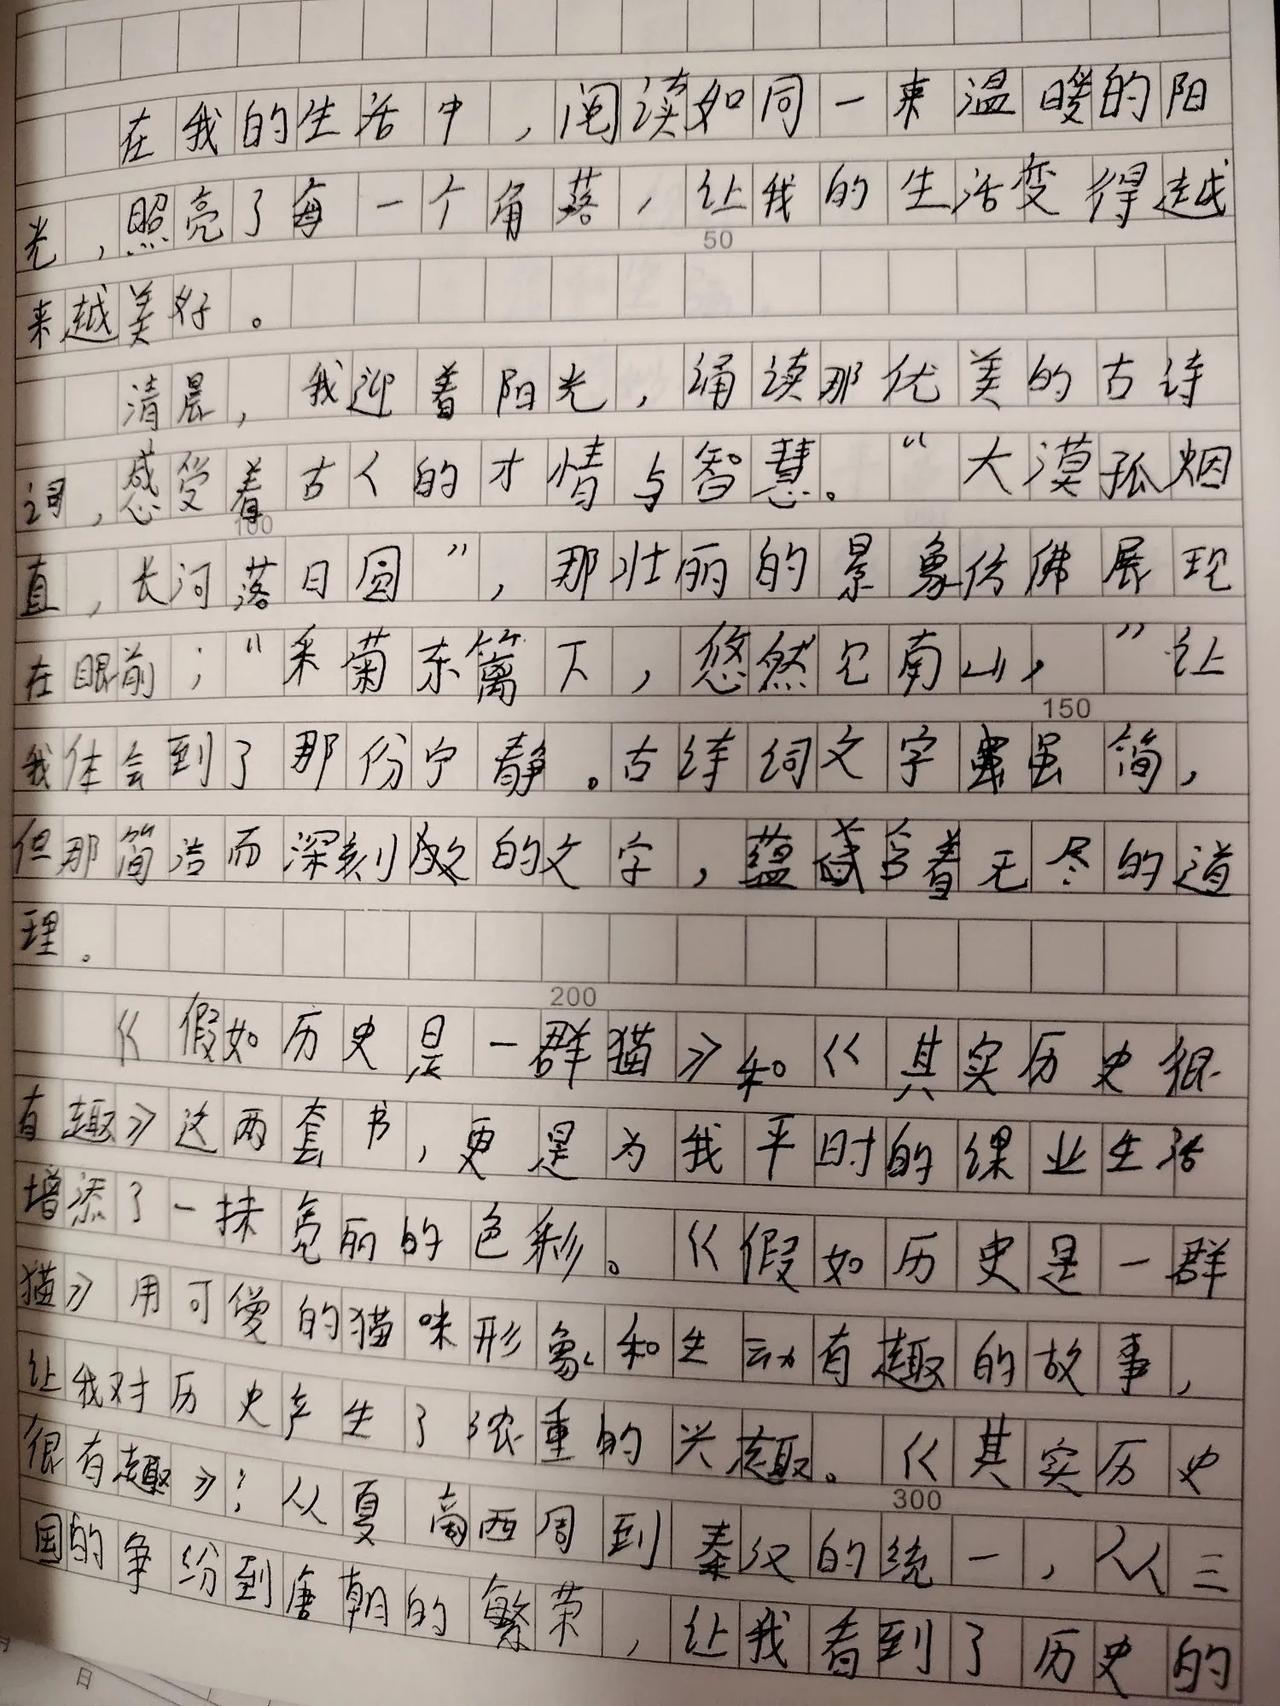 在我的生活中，阅读如同一束温暖的阳
光，照亮了每一个角落，让我的生活变得越
50
来越美好。
清晨，我迎着阳光，诵读那优美的古诗
词，感受着古人的才情与智慧。“大漠孤烟
100
直，长河落日圆”，那壮丽的景象仿佛展现
在眼前；“采菊东篱下，悠然见南山，”让
150
我体会到了那份宁静。古诗词文字虽简，
但那简洁而深刻的文字，蕴含着无尽的道
理。
200
《假如历史是一群猫》和《其实历史很
有趣》这两套书，更是为我平时的课业生活
增添了一抹亮丽的色彩。《假如历史是一群
猫》用可爱的猫咪形象和生动有趣的故事，
让我对历史产生了浓重的兴趣。《其实历史
很有趣》；从夏商西周到秦汉的统一，从三
300
国的争纷到唐朝的繁荣，让我看到了历史的
日